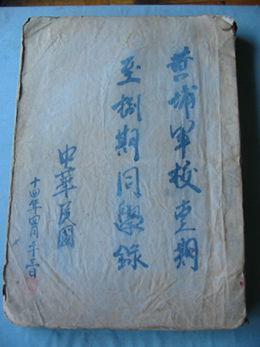 黄埔軍校壹期
至捌期同學錄
中華民國
十四年四月二十三日